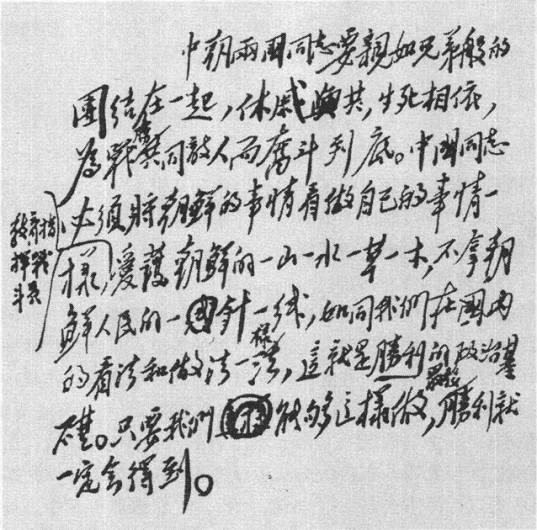 中朝兩國同志要親如兄弟般的
團結在一起，休戚與共，生死相依，
為戰勝共同敵人而奮斗到底。中國同志
必須將朝鮮的事情看做自己的事情一
教育指
揮員戰
斗員
樣，愛護朝鮮的一山一水一草一木，不拿朝
鮮人民的一針一線，如同我們在國內
的看法和做法一樣，這就是勝利的政治基
礎。只要我們能夠這樣做，最後勝利就
一定會得到。